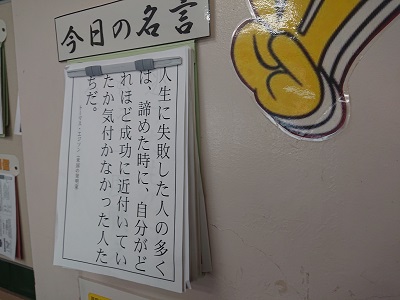 今日の名言
人生に失敗した人の多く
は、諦めた時に、自分がど
れほど成功に近付いてい
たか気付かなかった人た
ちだ。